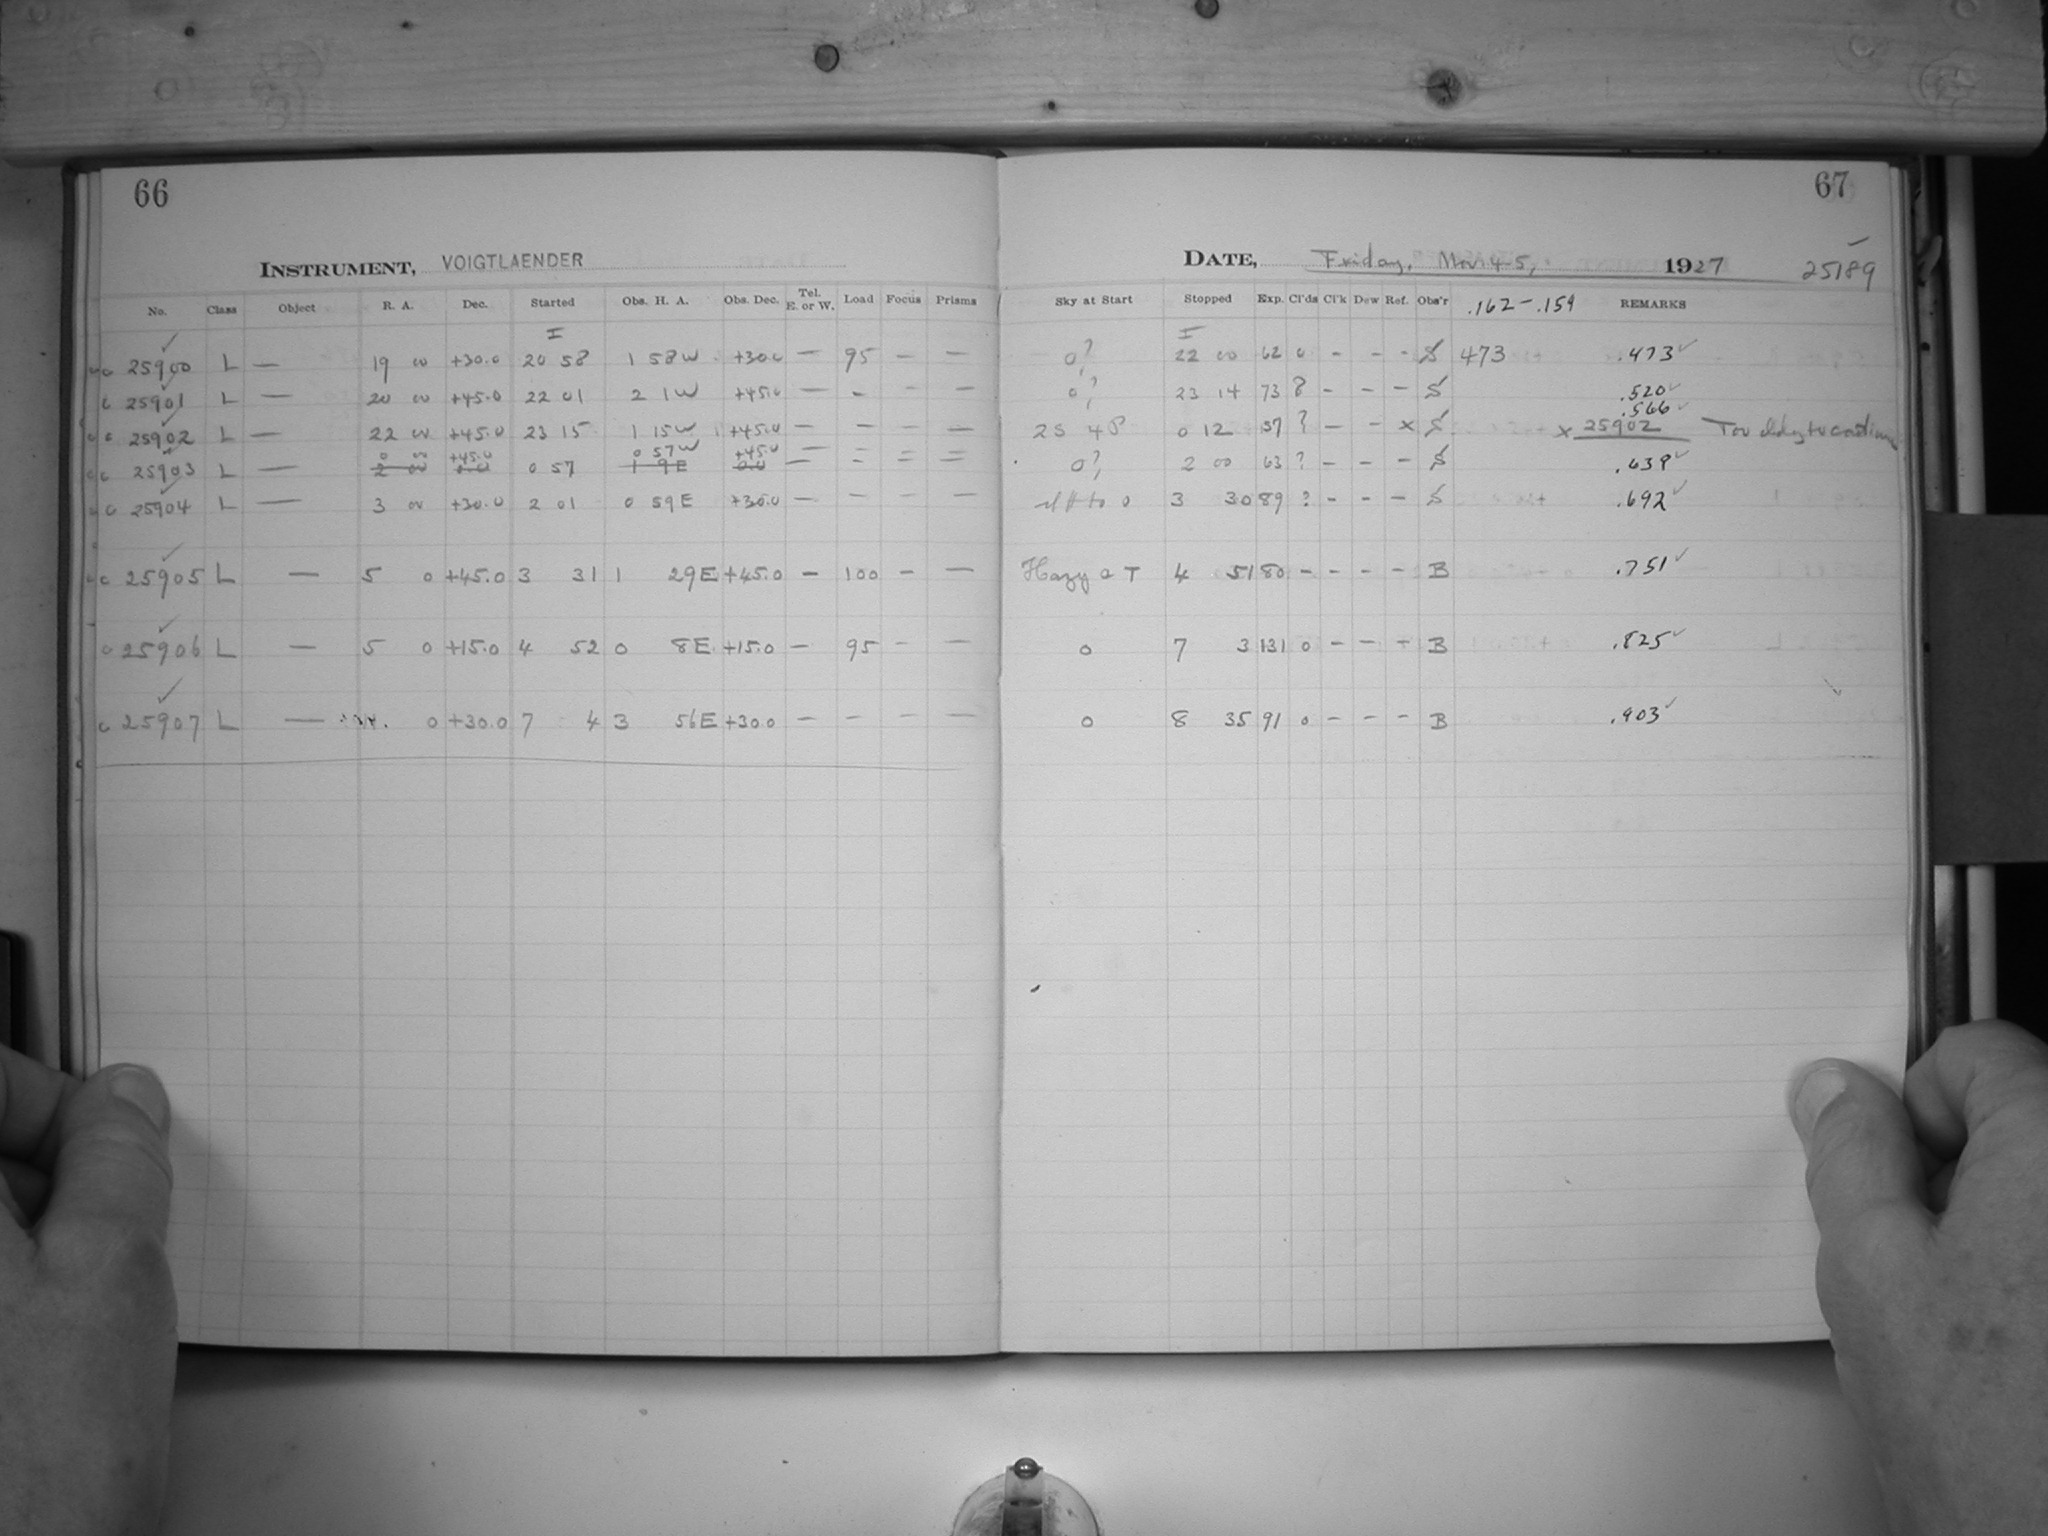 66
INSTRUMENT, VOIGTLAENDER
No. Class Object R. A. Dec. Started Obs. H. A. Obs. Dec. Tel. E. or W. Load Focus Prisms
I
25900 L — 19 00 +30.0 20 58 1 58W +30.0 — 95 — —
25901 L — 20 00 +45.0 22 01 2 1W +45.0 — - - —
25902 L — 22 00 +45.0 23 15 1 15W +45.0 — — - —
0 00 +45.0 0 57W +45.0 — - - —
25903 L — 2 00 0.0 0 57 1 9E 0.0 — - - —
25904 L — 3 00 +30.0 2 01 0 59E +30.0 — - - —
25905 L — 5 0 +45.0 3 31 1 29E +45.0 — 100 - —
25906 L — 5 0 +15.0 4 52 0 8E +15.0 — 95 - —
25907 L — 0 +30.0 7 4 3 56E +30.0 — - - —
67
DATE, Friday, Nov. 4-5, 1927 25189
Sky at Start Stopped Exp. Cl'ds Cl'k Dew Ref. Obs'r .162-.159 REMARKS
I
0? 22 00 62 0 - - - S 473 .473 ✓
0? 23 14 73 ? - - - S .520 ✓
.566 ✓
2S 4P 0 12 57 ? - - x S x 25902 Too to
0? 2 00 63 ? - - - S .639 ✓
to 0 3 30 89 ? - - - S .692 ✓
Hazy a T 4 51 80 - - - - B .751 ✓
0 7 3 131 0 - - - B .825 ✓
0 8 35 91 0 - - - B .903 ✓